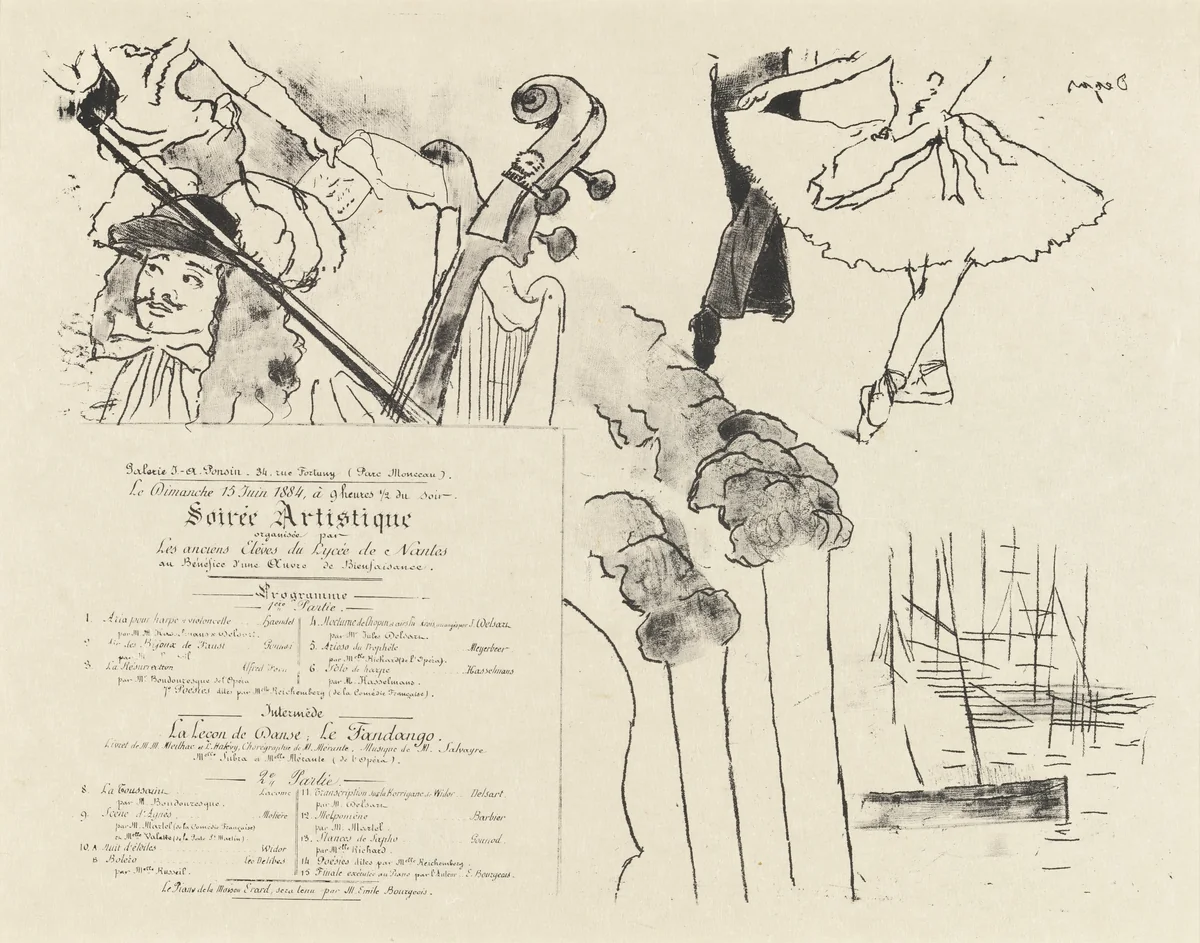 Degas
Galerie J-A. Ponsin. 34, rue Fortuny (Parc Monceau).
Le Dimanche 15 Juin 1884, à 9 heures ½ du soir.
Soirée Artistique
organisée par
Les anciens Elèves du Lycée de Nantes
au Bénéfice d'une Œuvre de Bienfaisance.
Programme
1ère Partie.
1. Aria pour harpe & violoncelle Haendel
par M.M. Hasselmans & Delsart.
2. Air des Bijoux de Faust Gounod
par
3. La Résurrection Alfred
par Mr Boudouresque de l'Opéra
4. Nocturne de Chopin J. Delsart
par Mr Jules Delsart.
5. Arioso du Prophète Meyerbeer
par Melle Richard (de l'Opéra).
6. Solo de harpe Hasselmans
par M. Hasselmans.
7º Poésies dites par Melle Reichemberg (de la Comédie Française).
Intermède
La Leçon de Danse; Le Fandango.
Livret de M.M. Meilhac et L. Halévy, Chorégraphie de M. Mérante. Musique de M. Salvayre.
Melle Subra & Melle Mérante (de l'Opéra).
2e Partie.
8. La Toussaint Lacome
par M. Boudouresque.
9. Scène d'Agnès Molière
par M. Martel (de la Comédie Française)
& Melle Valette (de la Porte St Martin)
10. A Nuit d'étoiles Widor
B Boléro Léo Delibes
par Melle Russeil.
11. Transcription sur la Korrigane de Widor Delsart
par M. Delsart
12. Melpomène Barbier
par M. Martel.
13. Stances de Sapho Gounod.
par Melle Richard.
14 Poésies dites par Melle Reichemberg.
15 Finale exécutée au Piano par l'Auteur. E. Bourgeois.
Le Piano de la Maison Erard, sera tenu par M. Emile Bourgeois.